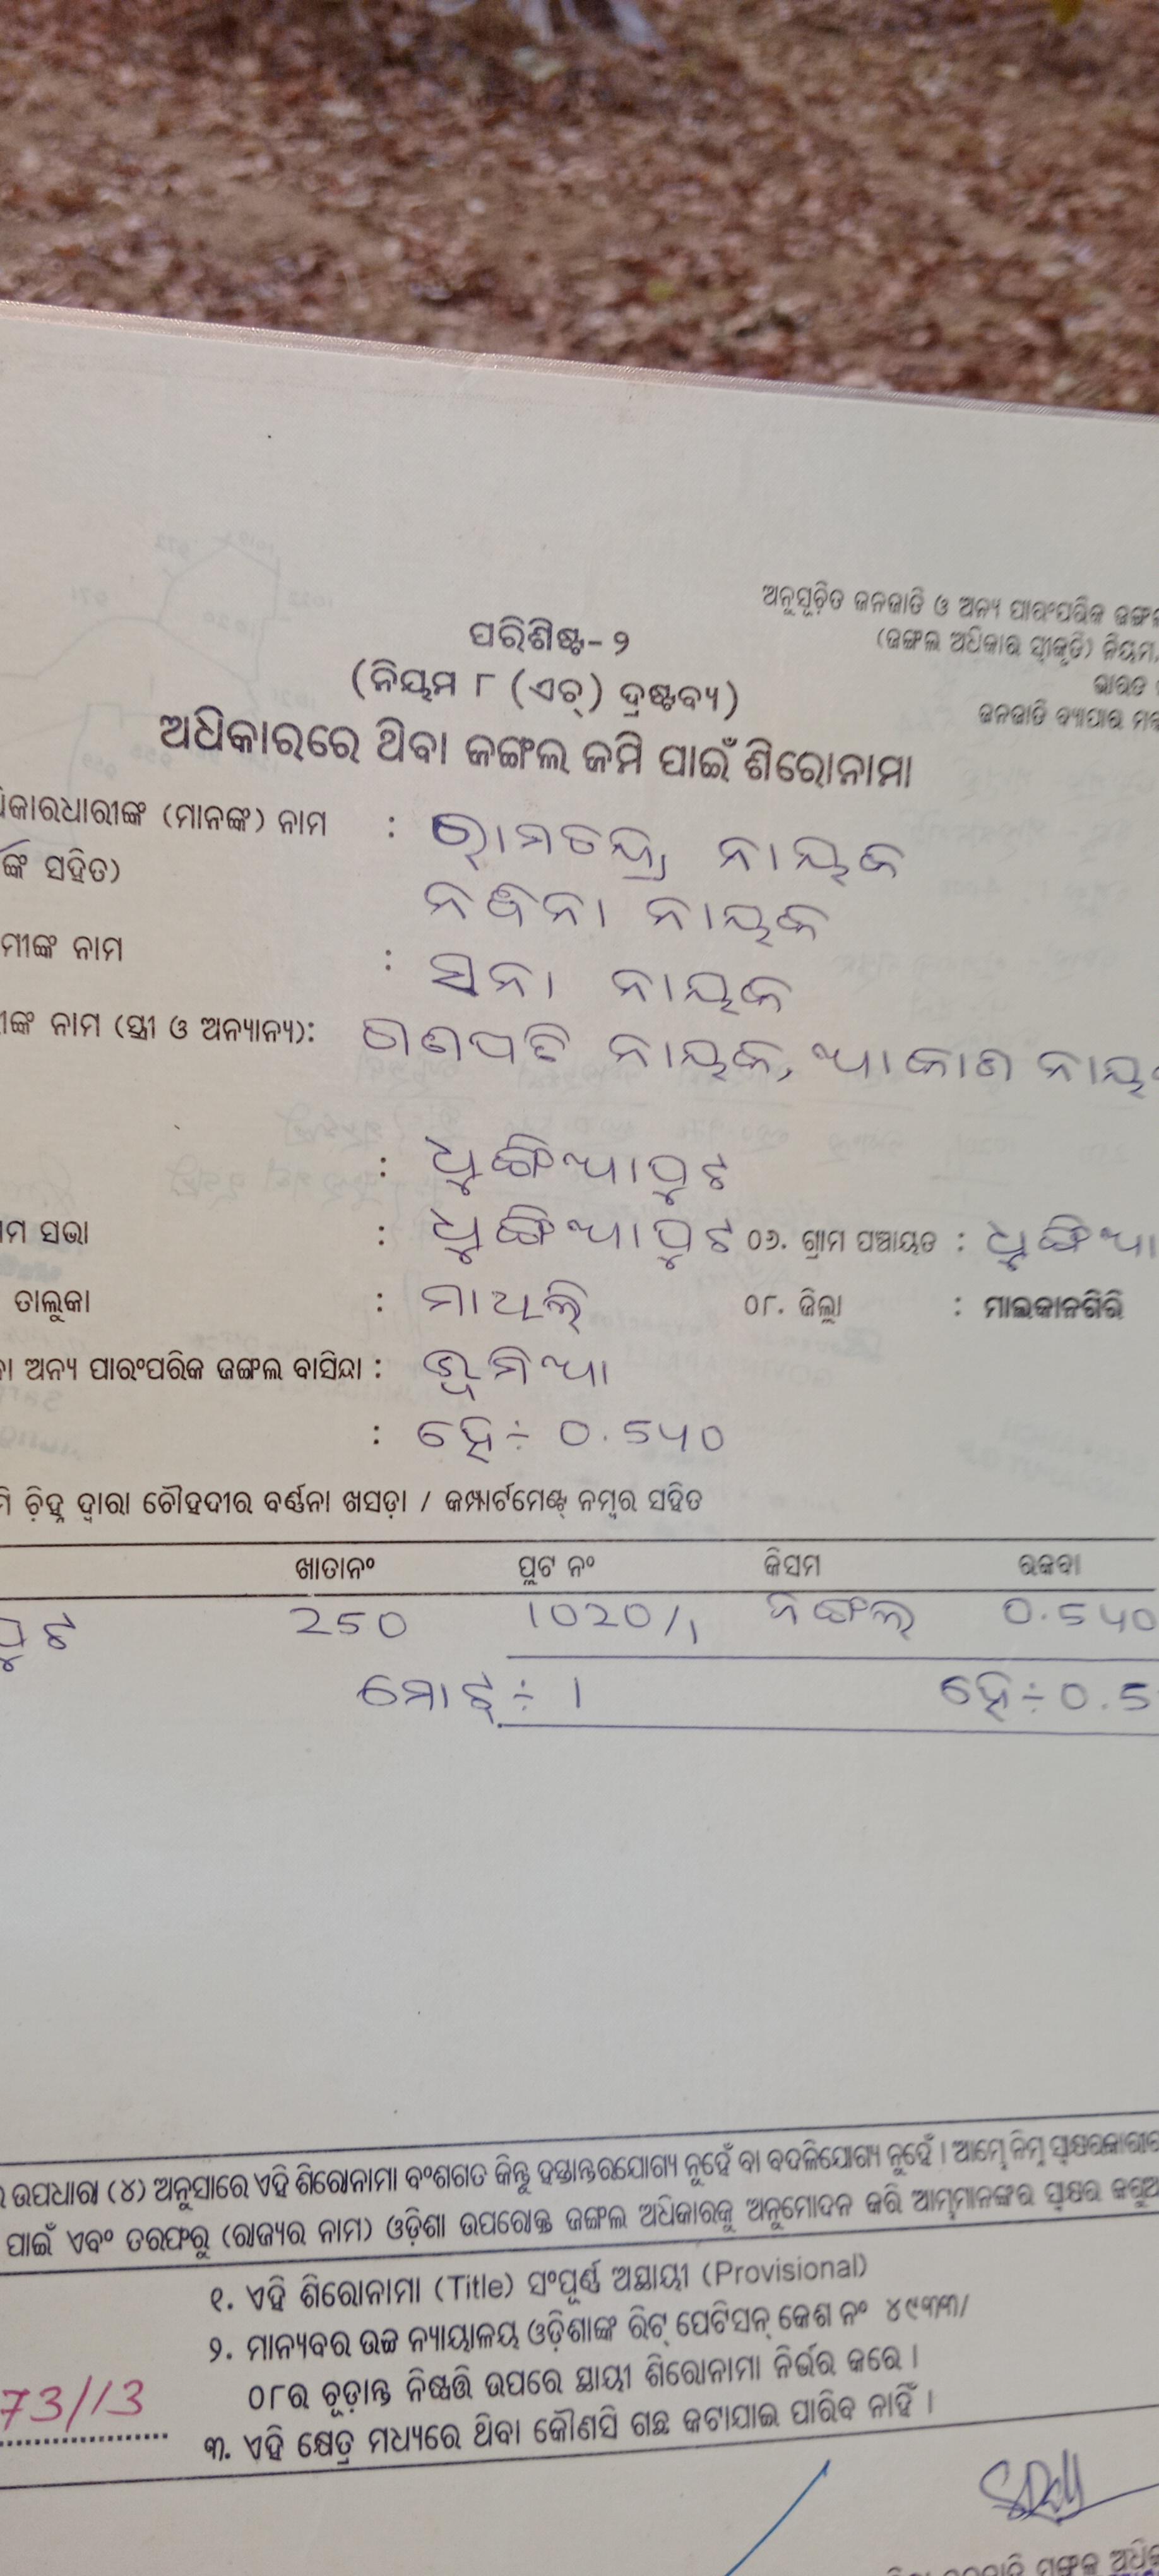 ଅନୁସୂଚିତ ଜନଜାତି ଓ ଅନ୍ୟ ପାରଂପରିକ ଜଙ୍ଗଲ
(ଜଙ୍ଗଲ ଅଧିକାର ସ୍ୱୀକୃତି) ନିୟମ,
ଭାରତ
ଜନଜାତି ବ୍ୟାପାର
ପରିଶିଷ୍ଟ-୨
(ନିୟମ ୮ (ଏଚ୍) ଦ୍ରଷ୍ଟବ୍ୟ)
ଅଧିକାରରେ ଥିବା ଜଙ୍ଗଲ ଜମି ପାଇଁ ଶିରୋନାମା
ଧିକାରଧାରୀଙ୍କ (ମାନଙ୍କ) ନାମ : ରାମଚନ୍ଦ୍ର ନାୟକ
ଙ୍କ ସହିତ)
ନାୟକ
ମୀଙ୍କ ନାମ : ସନା ନାୟକ
ୀଙ୍କ ନାମ (ସ୍ତ୍ରୀ ଓ ଅନ୍ୟାନ୍ୟ): ଗଣପତି ନାୟକ, ଆକାଶ ନାୟ
: ଧୁଙ୍ଗିଆପୁଟ
ମ ସଭା : ଧୁଙ୍ଗିଆପୁଟ ୦୬. ଗ୍ରାମ ପଞ୍ଚାୟତ : ଧୁଙ୍ଗିଆ
ତାଲୁକା : ମାଥିଲି ୦୮. ଜିଲ୍ଲା : ମାଲକାନଗିରି
ା ଅନ୍ୟ ପାରଂପରିକ ଜଙ୍ଗଲ ବାସିନ୍ଦା : ଭୂମିଆ
: ହେ÷ 0.540
ମି ଚିହ୍ନ ଦ୍ୱାରା ଚୌହଦୀର ବର୍ଣ୍ଣନା ଖସଡ଼ା / କମ୍ପାର୍ଟମେଣ୍ଟ୍ ନମ୍ବର ସହିତ
ଖାତାନଂ ପ୍ଲଟ ନଂ କିସମ ରକବା
ପୁଟ 250 1020/1 ଜଙ୍ଗଲ 0.540
ମୋଟ୍ ÷ 1 ହେ÷0.5
ର ଉପଧାରା (୪) ଅନୁସାରେ ଏହି ଶିରୋନାମା ବଂଶଗତ କିନ୍ତୁ ହସ୍ତାନ୍ତରଯୋଗ୍ୟ ନୁହେଁ ବା ବଦଳିଯୋଗ୍ୟ ନୁହେଁ । ଆମ୍ଭେ ନିମ୍ନ ସ୍ୱାକ୍ଷରକାରୀ
ପାଇଁ ଏବଂ ତରଫରୁ (ରାଜ୍ୟର ନାମ) ଓଡ଼ିଶା ଉପରୋକ୍ତ ଜଙ୍ଗଲ ଅଧିକାରକୁ ଅନୁମୋଦନ କରି ଆମ୍ଭମାନଙ୍କର ସ୍ୱାକ୍ଷର କରୁଅ
୧. ଏହି ଶିରୋନାମା (Title) ସଂପୂର୍ଣ୍ଣ ଅସ୍ଥାୟୀ (Provisional)
୨. ମାନ୍ୟବର ଉଚ୍ଚ ନ୍ୟାୟାଳୟ ଓଡ଼ିଶାଙ୍କ ରିଟ୍ ପେଟିସନ୍ କେଶ ନଂ ୪୯୩୩/
୦୮ର ଚୂଡ଼ାନ୍ତ ନିଷ୍ପତ୍ତି ଉପରେ ସ୍ଥାୟୀ ଶିରୋନାମା ନିର୍ଭର କରେ ।
73/13
୩. ଏହି କ୍ଷେତ୍ର ମଧ୍ୟରେ ଥିବା କୌଣସି ଗଛ କଟାଯାଇ ପାରିବ ନାହିଁ ।